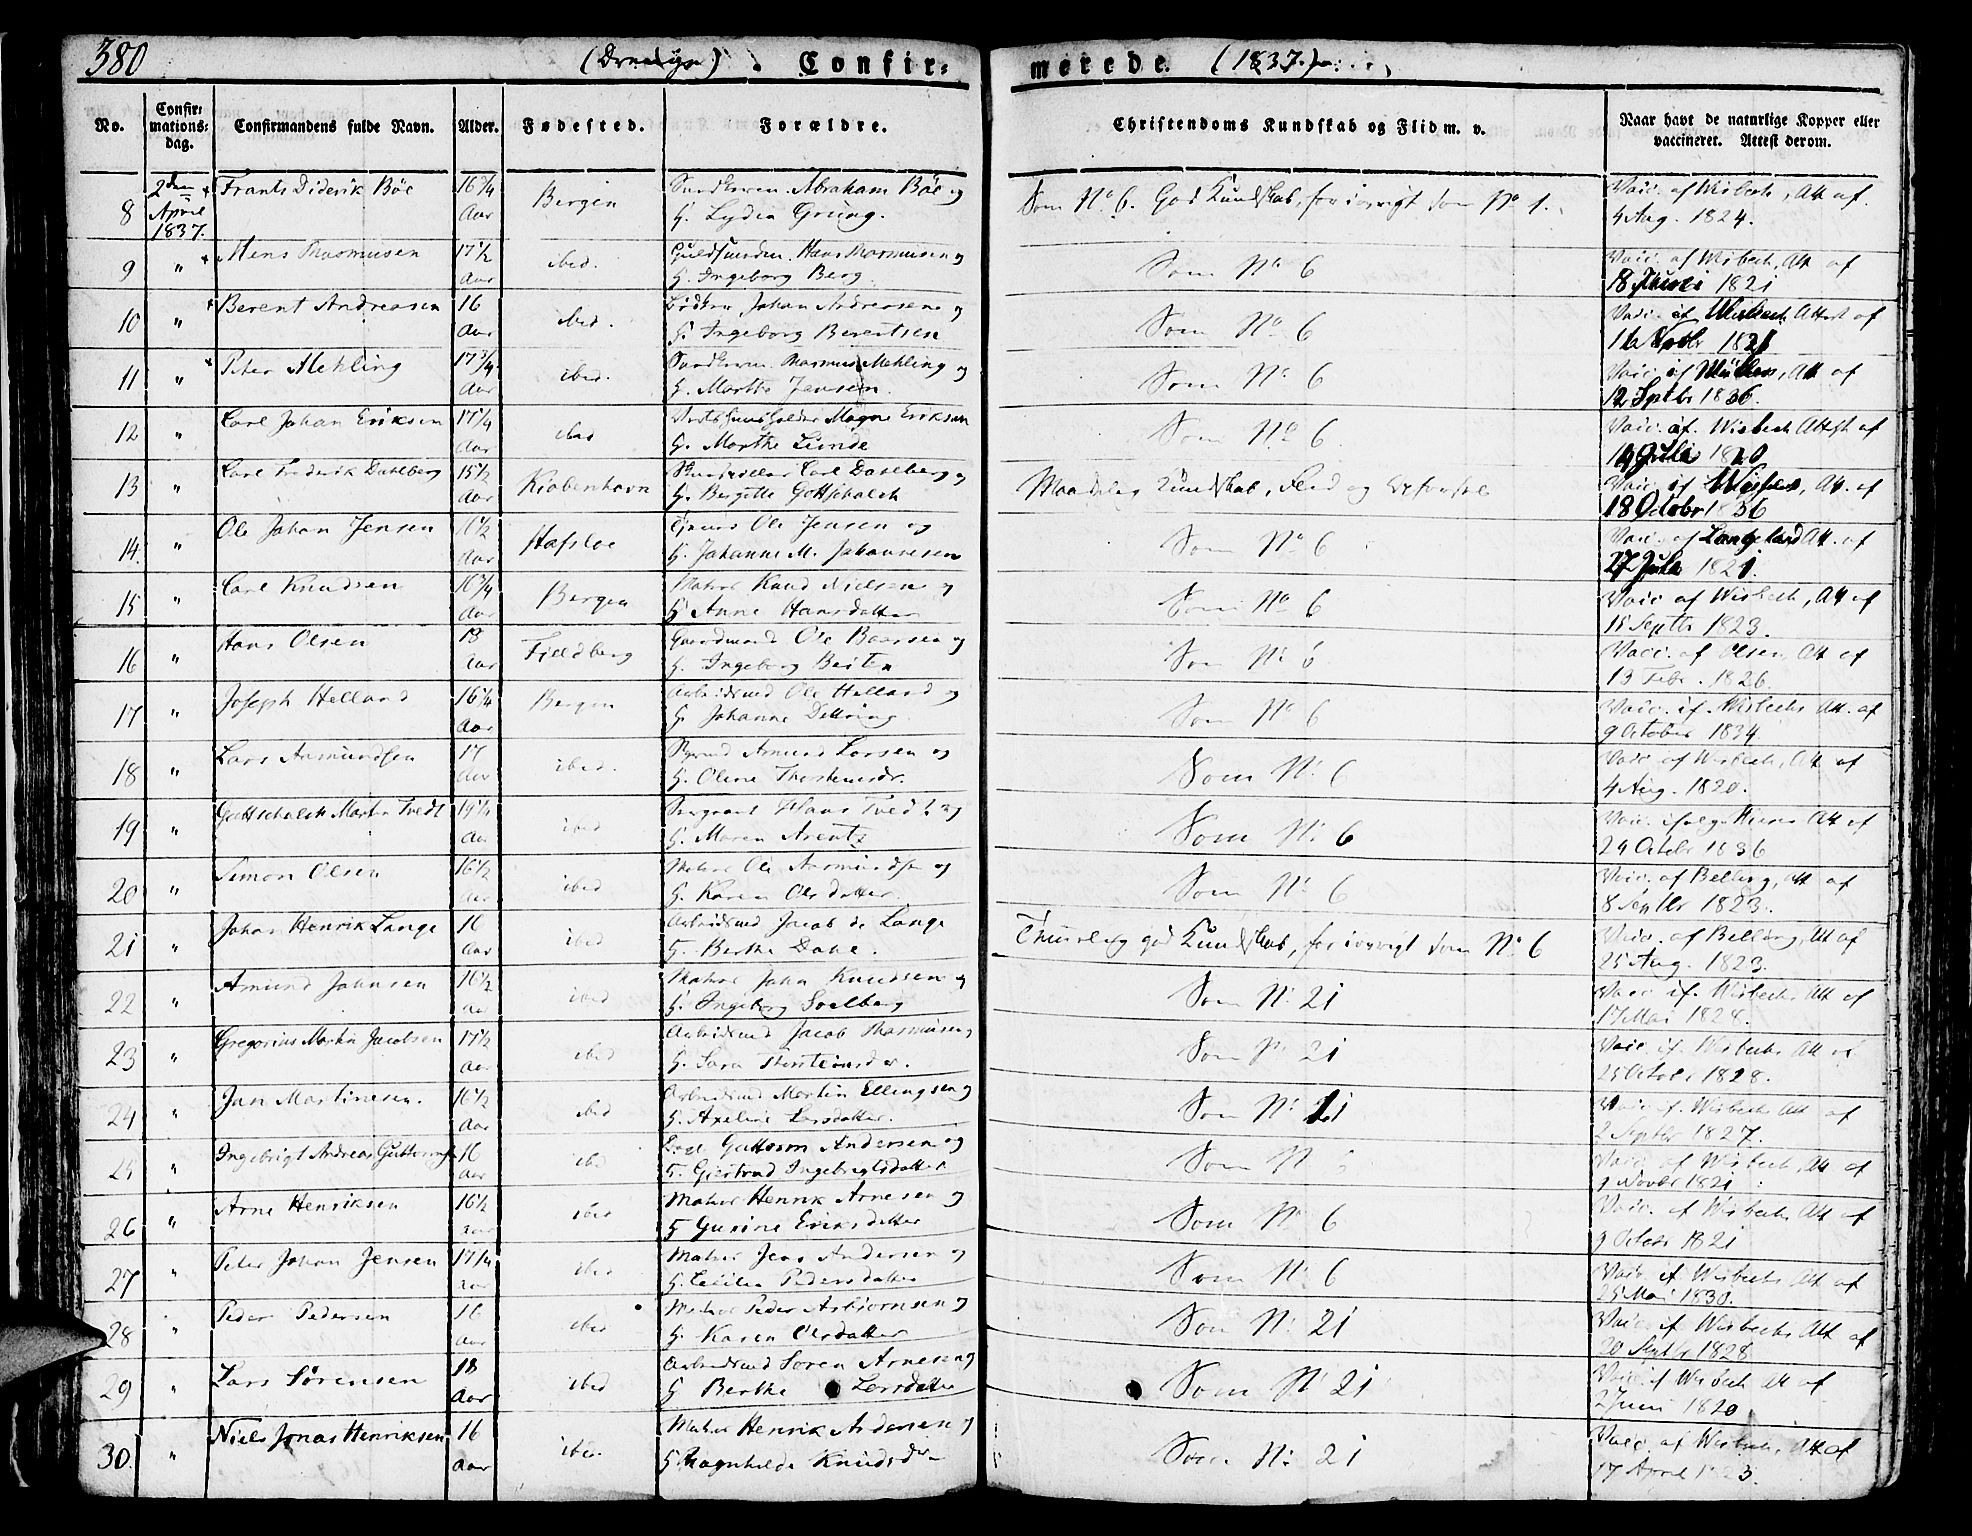 380 (Drenge) Confir= merede. (1837.)
No. Confir=mations=dag. Confirmandens fulde Navn. Alder. Fødested. Forældre. Christendoms Kundskab og Flid m. v. Naar havt de naturlige Kopper eller vaccineret. Attest derom.
8 2den April 1837. Frants Diderik Böe 16 3/4 Aar Bergen Abraham Böe og H. Lydia Grung. Som No 6. God Kundskab, for øvrigt som No 1. Vacc. af Wisbech, Att. af 4 Aug. 1824.
9 " Mens Rasmusen 17 1/2 Aar ibed. Hans Rasmusen og H. Ingeborg Berg. Som No 6 Vacc. af Wisbech, Att. af 18 Junii 1821
10 " Berent Andreasen 16 Aar ibed. Johan Andreasen og H. Ingeborg Berentsen Som No 6 Vacc. if. Wisbech Attest af 1821
11 " Peter Mehling 17 3/4 Aar ibed. Rasmus Mehling og H. Marthe Jensen. Som No 6 Vacc. if Att af 12 Septbr 1836.
12 " Carl Johan Eriksen 17 1/4 Aar ibed Magne Eriksen H. Marthe Lunde Som No 6. Vacc. af. Wisbech Attest af Julii 1820
13 " Carl Frederik Dahlberg 15 1/2 Aar Kiøbenhavn Carl Dahlberg og H. Bergitte Gottschalck Maadelig Kundskab, Flid og Vacc. if Att. af 18 October 1836
14. " Ole Johan Jensen 16 1/2 Aar Hafsloe Ole Jensen og H. Johanne M. Johannesen Som No 6 Vacc. af Langeland Att. af 27 Julii 1821.
15 " Carl Knudsen 16 3/4 Aar Bergen Matros Knud Nielsen og H. Anne Hansdatter Som No 6 Vacc af Wisbech, Att af Septbr 1823.
16 " Hans Olsen 18 Aar Fieldberg Gaardmand Ole Baarsen og H. Ingeborg Besten Som No 6 Vacc. af Olsen, Att af 13 Febr. 1826
17 " Joseph Helland 16 1/4 Aar Bergen Arbeidsmd Ole Helland og H. Johanne Dettring. Som No 6 Vacc. if. Wisbechs Att. af 9 October 1834
18 " Lars Aamundsen 17 Aar ibed. Amund Larsen og H. Oline Thorstensdr. Som No 6 Vacc af Wisbech, Att af 4 Aug. 1820.
19 " Gottschalck Martin Tvedt 19 1/4 Aar ibed Sergeant Hans Tvedt og H. Maren Arentz Som No 6 Vacc. Att af 24 Octobr 1836
20 " Simon Olsen 16 1/2 Aar ibed Matros Ole Aamundsen og H. Karen Olsdatter Som No 6 Vacc. af Belling, Att af 8 Septbr 1823.
21 " Johan Henrik Lange 16 Aar ibed Arbeidsmd Jacob de Lange H. Berthe Dahl. Thaalelig god Kundskab, for øvrigt som No 6 Vacc. af Belling, Att af 25 Aug. 1823.
22 " Amund Johnsen 16 1/2 Aar ibed Matros John Knudsen og H. Ingeborg Soelberg Som No 21 Vacc if. Wisbechs Att af 17 Mai 1828.
23 " Gregorius Martin Jacobsen 17 1/2 Aar ibed Arbeidsmd Jacob Rasmusen H. Sara Thorsteinsdr. Som No 21 Vacc. if. Wisbechs Att af 25 Octobr 1828.
24 " Jan Martinesen. 16 1/2 Aar ibed Arbeidsmd Martin Ellingsen og H. Axeline Larsdatter. Som No 21 Vacc if. Wisbechs Att af 2 Septbr 1827.
25 " Ingebrigt Andreas Guttorms. 16 Aar ibed Lods Guttorm Andersen og H. Giertrud Ingebrigtsdatter Som N 6 Vacc. af Wisbech, Att af 9 Novbr 1821
26 " Arne Henriksen 16 1/2 Aar ibed Matros Henrik Arnesen og H Gurine Eriksdatter Som No 6 Vacc. af Wisbech, Att af 9 Octobr 1821
27 " Peter Johan Jensen 17 1/4 Aar ibed Matros Jens Andersen og H. Cecilia Pedersdatter Som No 6 Vacc if Wisbechs Att af 25 Mai 1830.
28 " Peder Pedersen 16 Aar ibed Matros Peder Asbiornsen og H. Karen Olsdatter Som No 21 Vacc. if Wisbechs Att af 20 Septbr 1828
29 " Lars Sörensen 18 Aar ibed Arbeidsmd Soren Arnesen og H Berthe Larsdatter Som No 21 Vacc. if Wisbech Att af 2 Juni 1820
30. " Niels Jonas Henriksen 16 Aar ibed. Matros Henrik Andersen og H. Ragnhilde Knudsdr Som No. 21 Vacc. af Wisbech, Att af 17 April 1823.